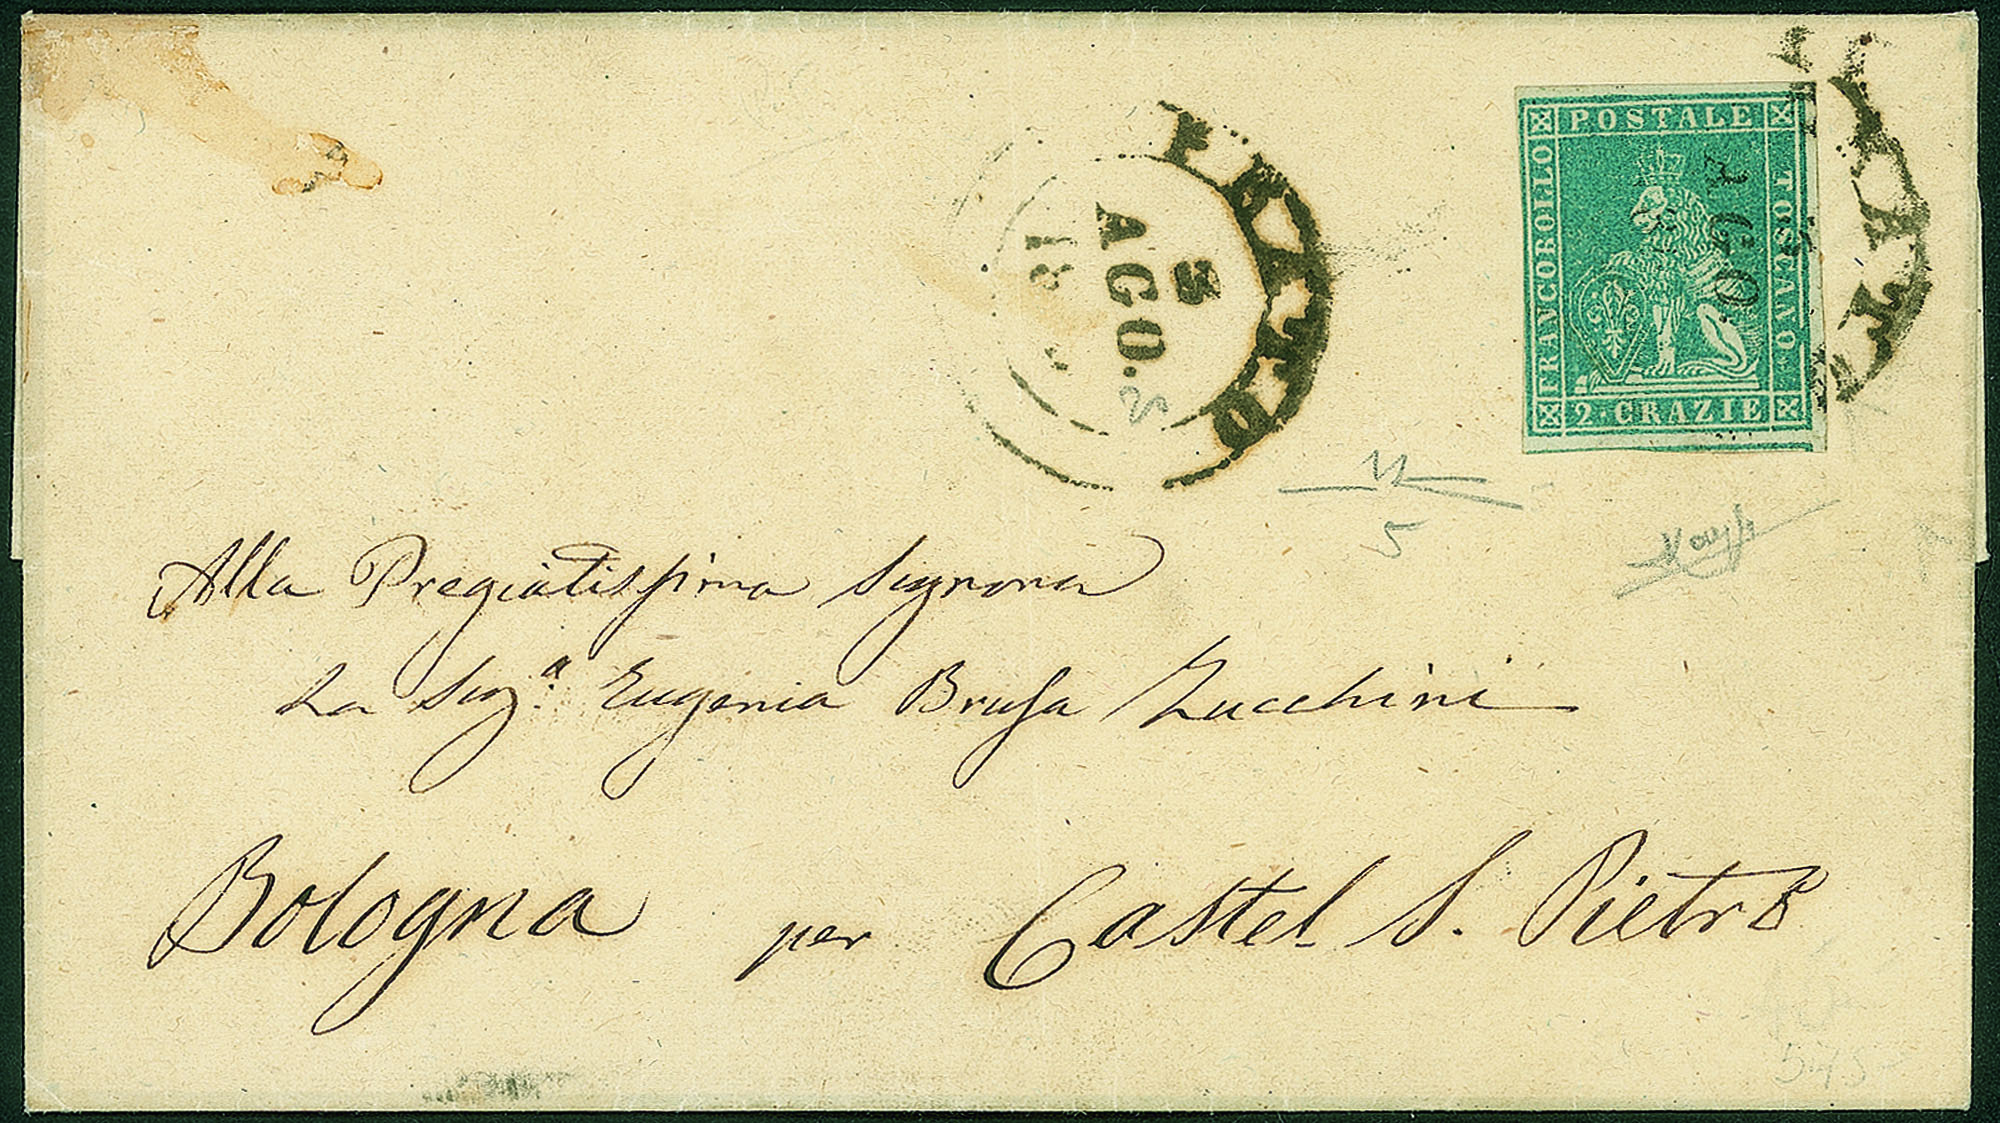 POSTALE
FRANCOBOLLO
TOSCANO
2·CRAZIE
AGO.
PRATO
3
AGO.
18
5
Alla Pregiatissima Signora
La Sig.ª Eugenia Brusa Zucchini
Bologna per Castel S. Pietro
575